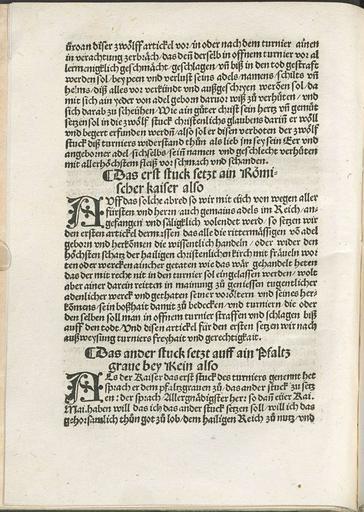 groan diser zwölff artickel vor/in oder nach dem turnier ainen
in verachtung zerbräch/das deñ derselb in offnem turnier vor al
lermenigklich geschmächt/geschlagen/vñ biß in den tod gestrafft
werden sol/bey peen vnd verlust seins adels/namens/schilts vñ
helms/diß alles vor verkündt vnd außgeschryen werden sol/da
mit sich ain yeder von adel geborn daruor wiß zů verhüten/vnd
sich darab zu scheühen/Wie ain gůter christ sein hertz vñ gemüt
setzen sol in die zwölff stuck christenlichs glaubens dariñ er wöll
vnd begert erfunden werdñ/also sol er disen verboten der zwölff
stuck diß turniers widerstand thůn als lieb im sey sein Eer vnd
angeborner adel/sich selbs/sein namen vnd geschlecht verhüten
mit allerhöchstem fleiß vor schmach vnd schanden.
¶Das erst stuck setzt ain Römi-
scher kaiser also
AVff das solche abred so wir mit eüch von wegen aller
fürsten vnd herrn auch gemains adels im Reich/an-
gefangen vnd säligklich volendet werd/so setzen wir
den ersten artickel dermassen/das alle die rittermässigen võ adel
geborn vnd herkomen die wissentlich handeln/oder wider den
höchsten schatz der hailigen christenlichen kirch mit fräueln wor
ten oder wercken ainicher getaten wie das wär gehandelt heten
das der mit recht nit in den turnier sol eingelassen werden/wolt
aber ainer darein reitten in mainung zů geniessen tugentlicher
adenlicher werck vnd gethaten seiner vorödtern vnd seins her
kömens/sein boßhait damit zů bedecken/vnd turniern/die oder
den selben soll man in offnem turnier straffen vnd schlagen biß
auff den tode/Vnd disen artickel für den ersten setzen wir nach
außweysung turniers freyhait vnd gerechtigkait.
¶Das ander stuck setzt auff ain Pfaltz
graue bey Rein also
ALs der Kaiser das erst stuck des turniers genennt het
sprach er dem pfaltzgrauen zů/das ander stuck zu setz
en:der sprach/Allergnädigster her:so dañ eüer Kai.
Mai.haben will das ich das ander stuck setzen soll/will ich das
gehorsamlich thůn got zů lob/dem hailigen Reich zů nutz/vnd